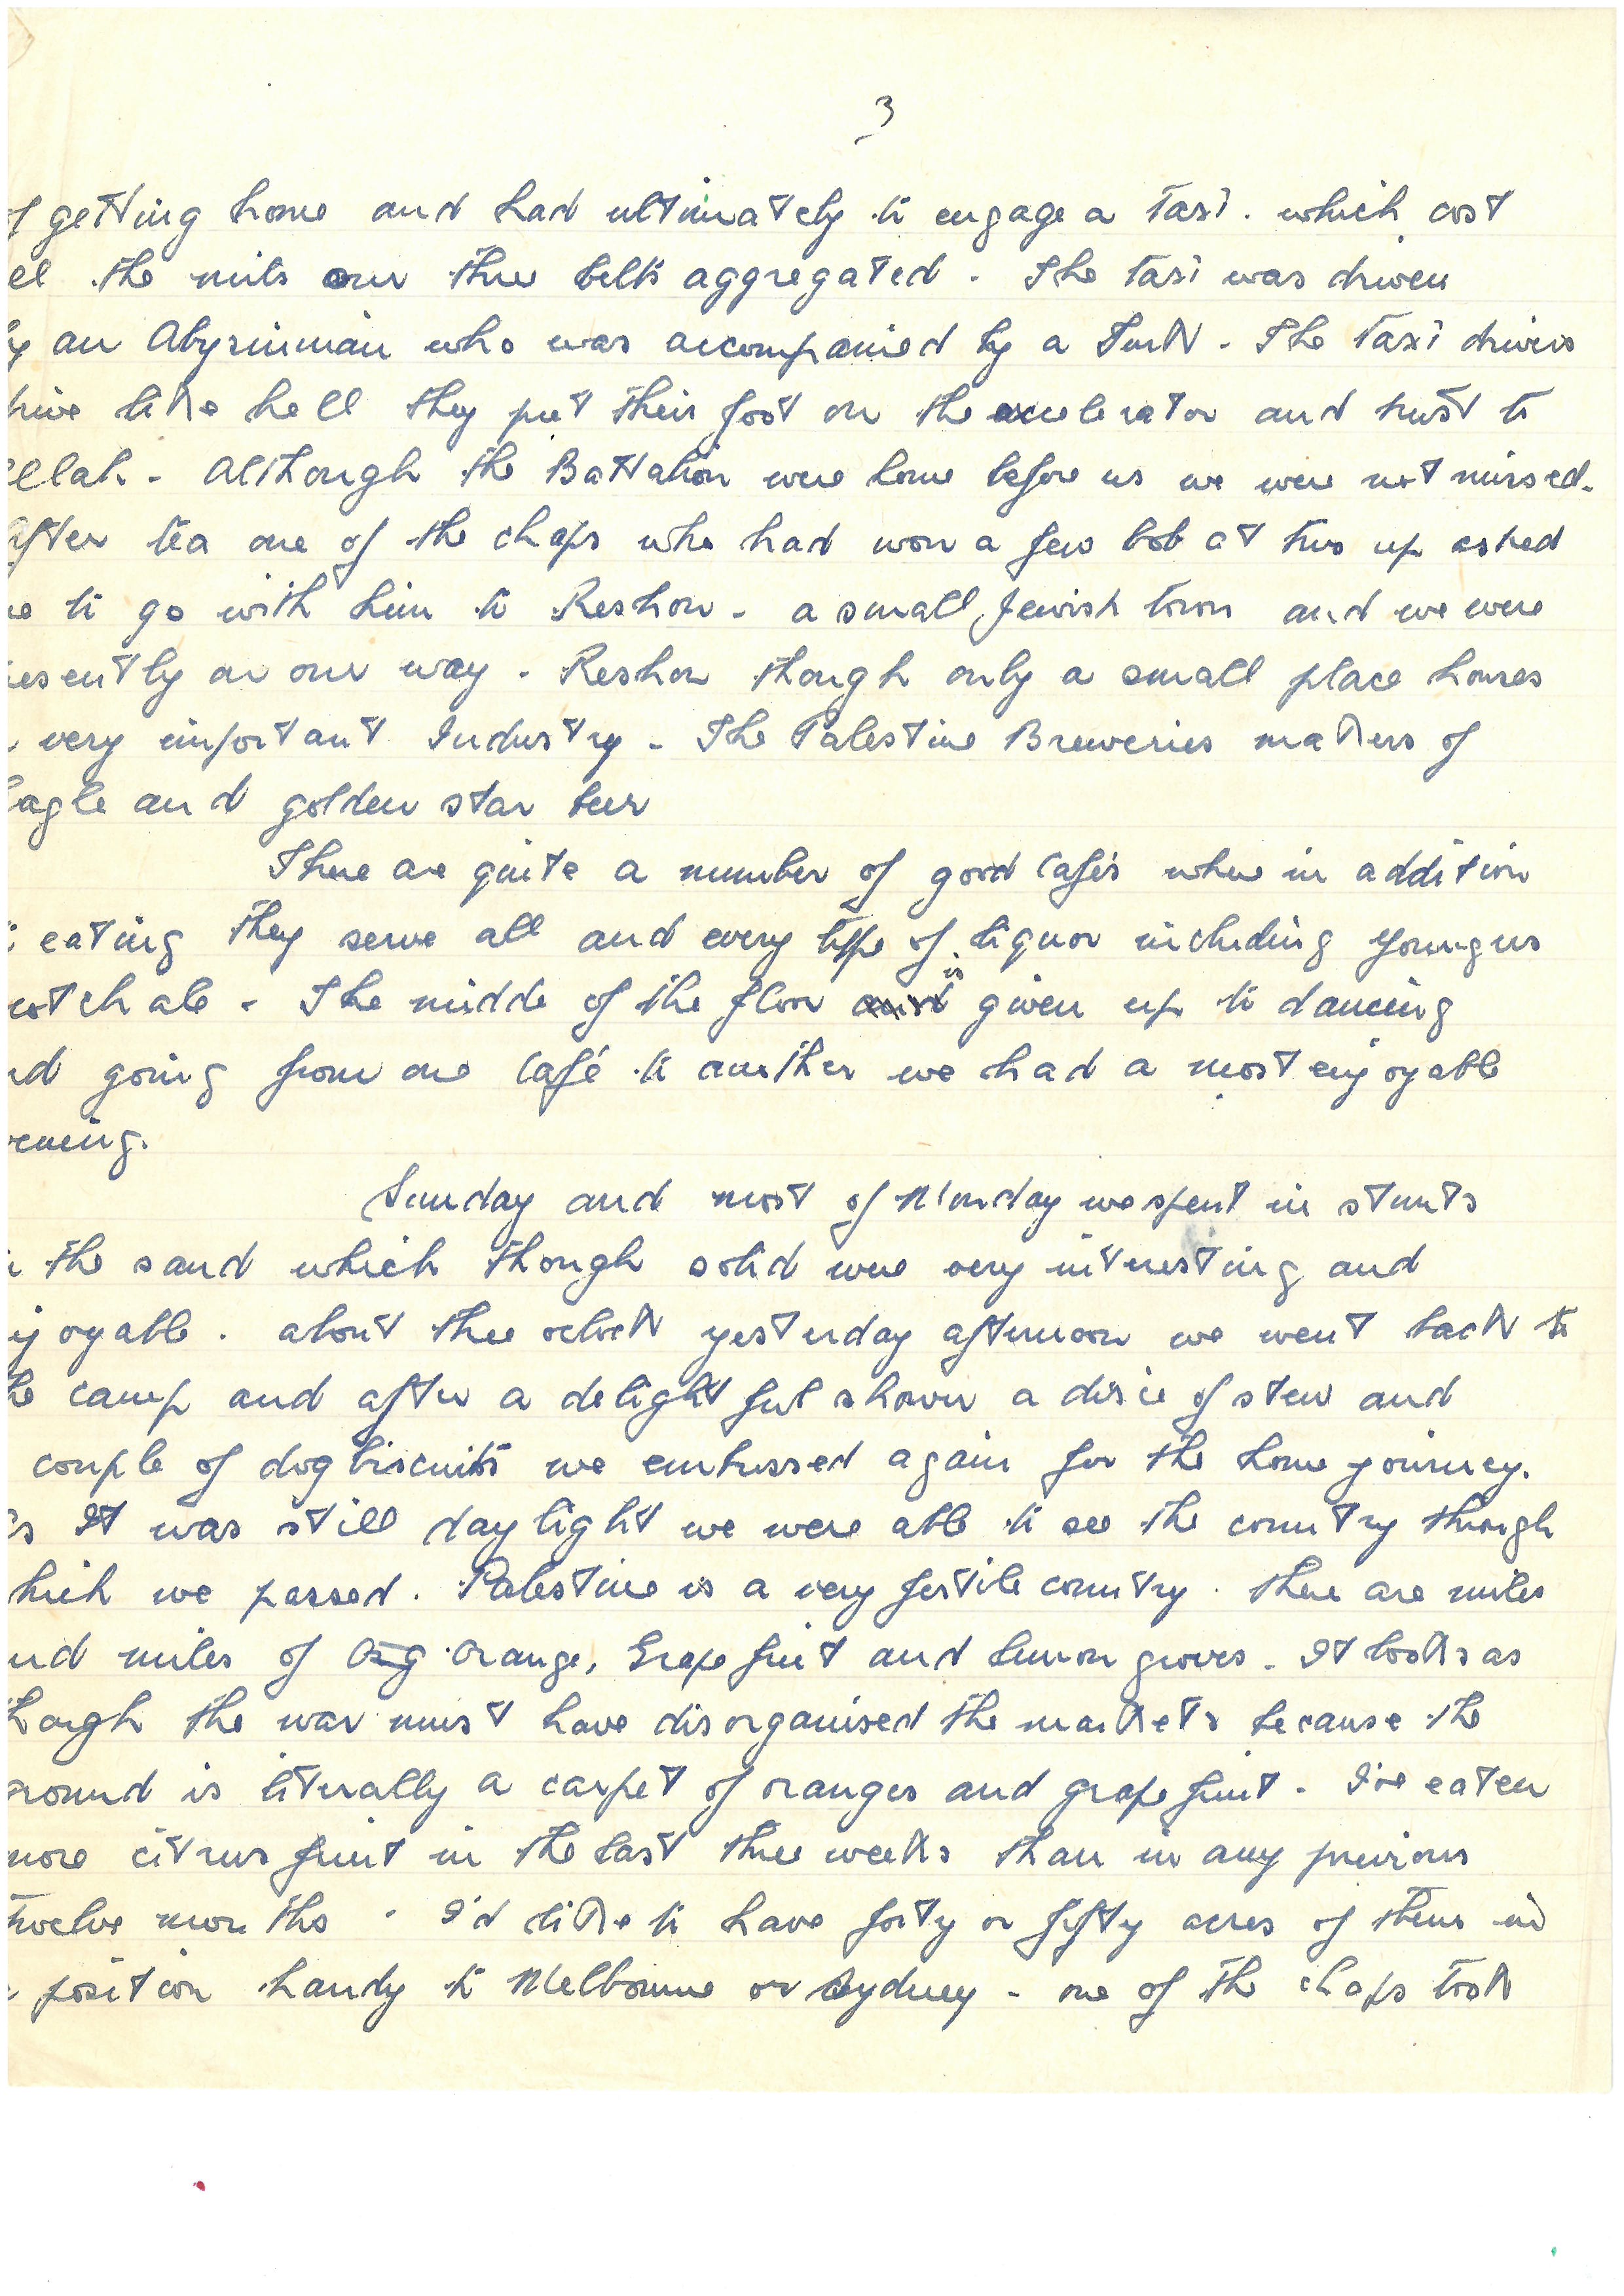 3
f getting home and had ultimately to engage a Taxi. which cost
ll the mils our three belts aggregated. The Taxi was driven
y an Abyssinian who was accompanied by a Turk. The Taxi drivers
rive like hell they put their foot on the accelerator and trust to
llah. Although the Battalion were home before us we were not missed.
After tea one of the chaps who had won a few bob at two up asked
e to go with him to Reshon. a small Jewish town and we were
resently on our way. Reshon though only a small place houses
very important Industry. The Palestine Breweries makers of
Eagle and golden star beer
There are quite a number of good Cafés where in addition
eating they serve all and every type of liquor including youngers
cotch ale. The middle of the floor is given up to dancing
nd going from one Café to another we had a most enjoyable
vening.
Sunday and most of Monday we spent in stunts
the sand which though solid were very interesting and
joyable. about three oclock yesterday afternoon we went back to
he camp and after a delightful shower a dixie of stew and
couple of dog biscuits we embussed again for the home journey.
s It was still daylight we were able to see the country through
hich we passed. Palestine is a very fertile country. there are miles
nd miles of Orange, Grape fruit and lemon groves. It looks as
hough the war must have disorganised the markets because the
ground is literally a carpet of oranges and grape fruit. I've eaten
more citrus fruit in the last three weeks than in any previous
twelve months. I'd like to have forty or fifty acres of them in
position handy to Melbourne or Sydney. one of the chaps took